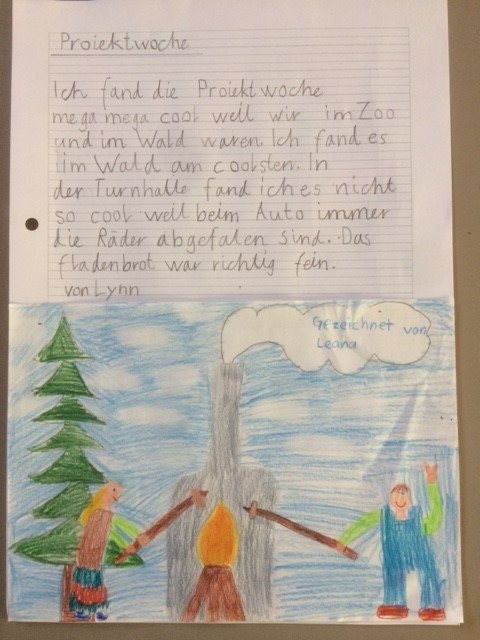 Projektwoche
Ich fand die Projektwoche
mega mega cool weil wir im Zoo
und im Wald waren. Ich fand es
im Wald am coolsten. In
der Turnhalle fand ich es nicht
so cool weil beim Auto immer
die Räder abgefalen sind. Das
fladenbrot war richtig fein.
von Lynn
Gezeichnet von
Leana